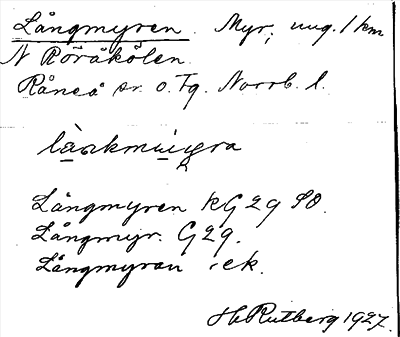 Långmyren. Myr, ung. 1 km
N Röråkölen.
Råneå sn. o. Tg. Norrb. l.
Långmyren KG 29 SO.
Långmyr. G29.
Långmyran ek.
H. Rutberg 1927.